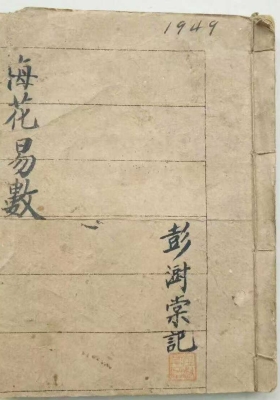 1949
海花易數
彭澍棠記